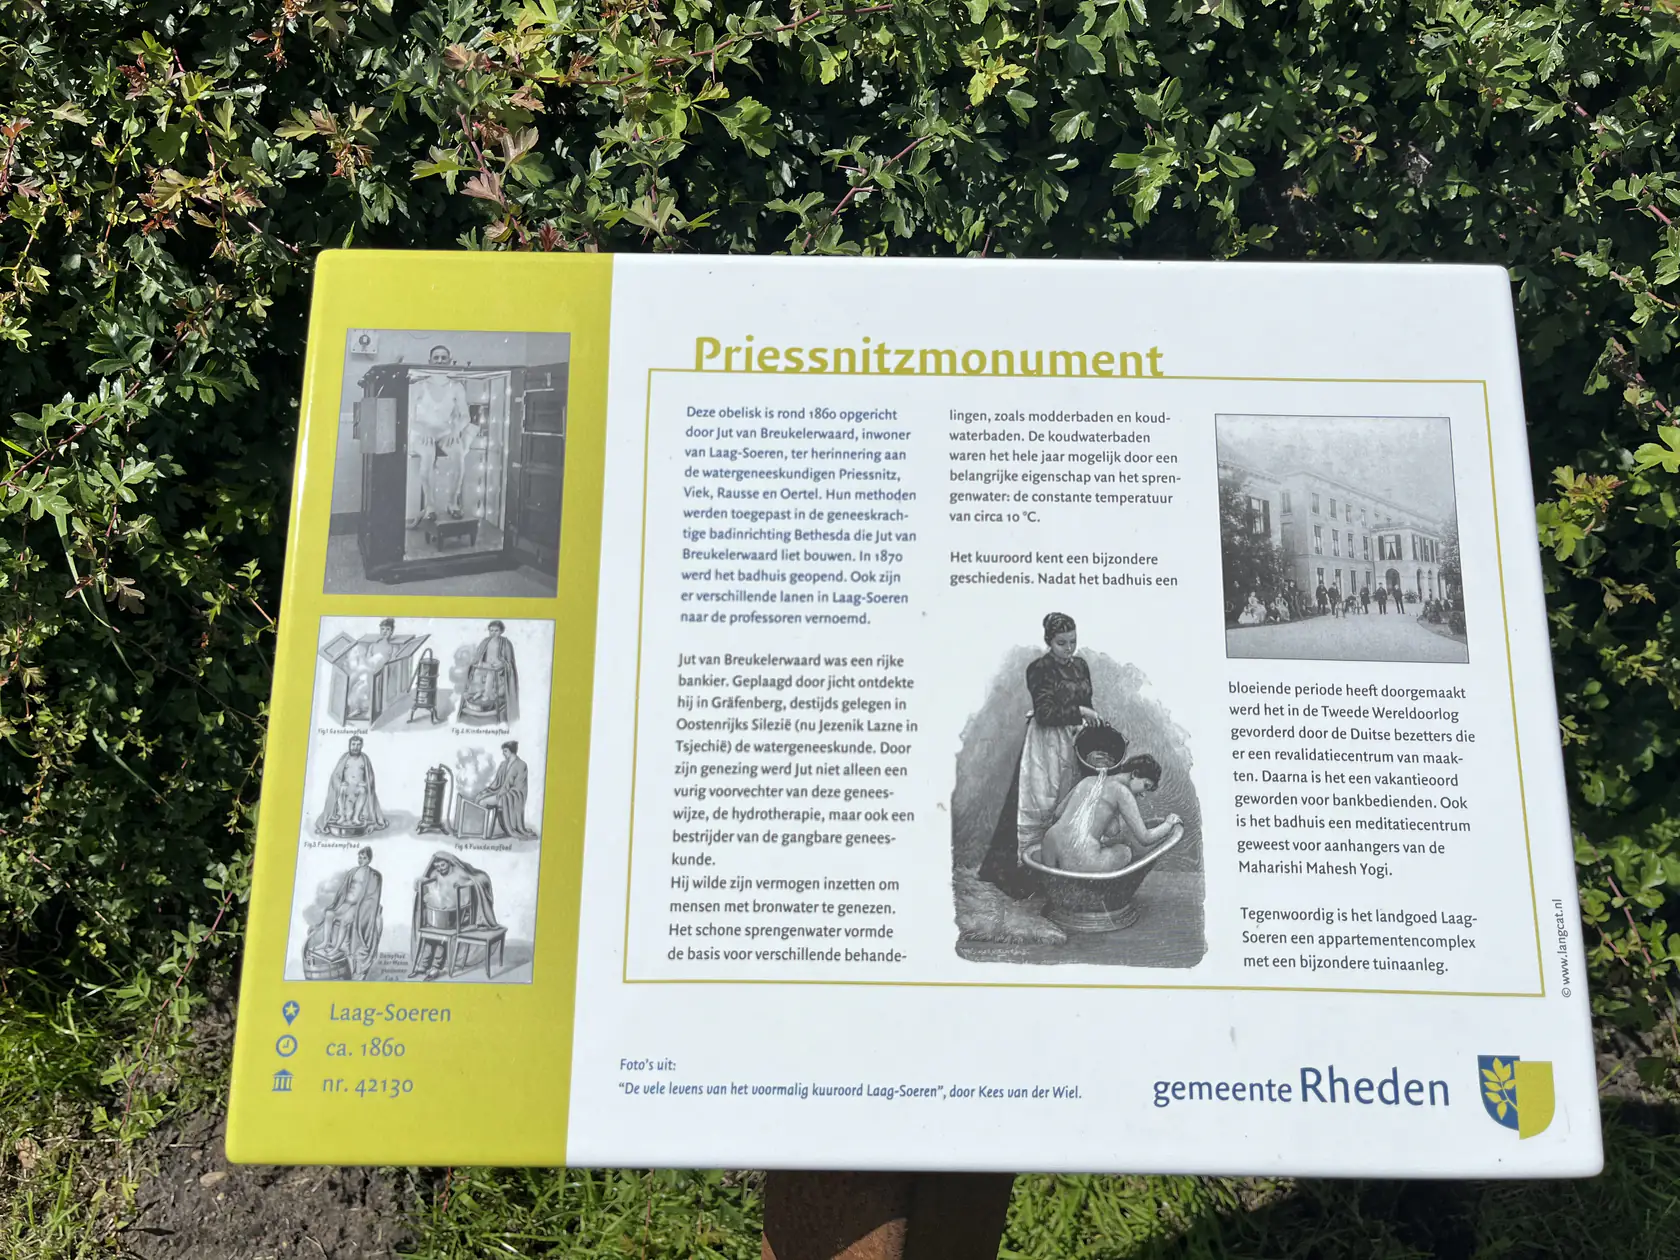 Priessnitzmonument
Deze obelisk is rond 1860 opgericht
door Jut van Breukelerwaard, inwoner
van Laag-Soeren, ter herinnering aan
de watergeneeskundigen Priessnitz,
Viek, Rausse en Oertel. Hun methoden
werden toegepast in de geneeskrach-
tige badinrichting Bethesda die Jut van
Breukelerwaard liet bouwen. In 1870
werd het badhuis geopend. Ook zijn
er verschillende lanen in Laag-Soeren
naar de professoren vernoemd.
Jut van Breukelerwaard was een rijke
bankier. Geplaagd door jicht ontdekte
hij in Gräfenberg, destijds gelegen in
Oostenrijks Silezië (nu Jezenik Lazne in
Tsjechië) de watergeneeskunde. Door
zijn genezing werd Jut niet alleen een
vurig voorvechter van deze genees-
wijze, de hydrotherapie, maar ook een
bestrijder van de gangbare genees-
kunde.
Hij wilde zijn vermogen inzetten om
mensen met bronwater te genezen.
Het schone sprengenwater vormde
de basis voor verschillende behande-
lingen, zoals modderbaden en koud-
waterbaden. De koudwaterbaden
waren het hele jaar mogelijk door een
belangrijke eigenschap van het spren-
genwater: de constante temperatuur
van circa 10 °C.
Het kuuroord kent een bijzondere
geschiedenis. Nadat het badhuis een
bloeiende periode heeft doorgemaakt
werd het in de Tweede Wereldoorlog
gevorderd door de Duitse bezetters die
er een revalidatiecentrum van maak-
ten. Daarna is het een vakantieoord
geworden voor bankbedienden. Ook
is het badhuis een meditatiecentrum
geweest voor aanhangers van de
Maharishi Mahesh Yogi.
Tegenwoordig is het landgoed Laag-
Soeren een appartementencomplex
met een bijzondere tuinaanleg.
© www.langcat.nl
Laag-Soeren
ca. 1860
nr. 42130
Foto's uit:
"De vele levens van het voormalig kuuroord Laag-Soeren", door Kees van der Wiel.
gemeente Rheden